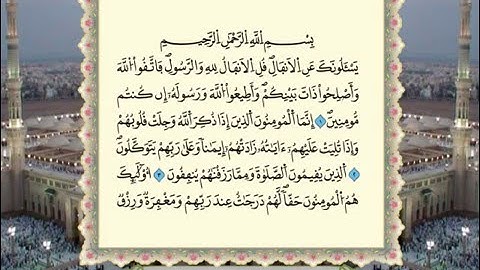 بِسْمِ اللَّهِ الرَّحْمَٰنِ الرَّحِيمِ
يَسْـَٔلُونَكَ عَنِ الْأَنفَالِ ۖ قُلِ الْأَنفَالُ لِلَّهِ وَالرَّسُولِ ۖ فَاتَّقُوا اللَّهَ
وَأَصْلِحُوا ذَاتَ بَيْنِكُمْ ۖ وَأَطِيعُوا اللَّهَ وَرَسُولَهُ إِن كُنتُم
مُّؤْمِنِينَ ١ إِنَّمَا الْمُؤْمِنُونَ الَّذِينَ إِذَا ذُكِرَ اللَّهُ وَجِلَتْ قُلُوبُهُمْ
وَإِذَا تُلِيَتْ عَلَيْهِمْ ءَايَٰتُهُ زَادَتْهُمْ إِيمَٰنًا وَعَلَىٰ رَبِّهِمْ يَتَوَكَّلُونَ
٢ الَّذِينَ يُقِيمُونَ الصَّلَوٰةَ وَمِمَّا رَزَقْنَٰهُمْ يُنفِقُونَ ٣ أُولَٰئِكَ
هُمُ الْمُؤْمِنُونَ حَقًّا ۚ لَّهُمْ دَرَجَٰتٌ عِندَ رَبِّهِمْ وَمَغْفِرَةٌ وَرِزْقٌ